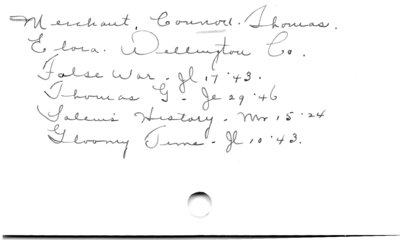 Merchant, Connon. Thomas.
Elora. Wellington Co.
False War. Jl 17 '43.
Thomas G. Je 29 '46
Salem's History. Mr 15 '24
Gloomy Time. Jl 10 '43.